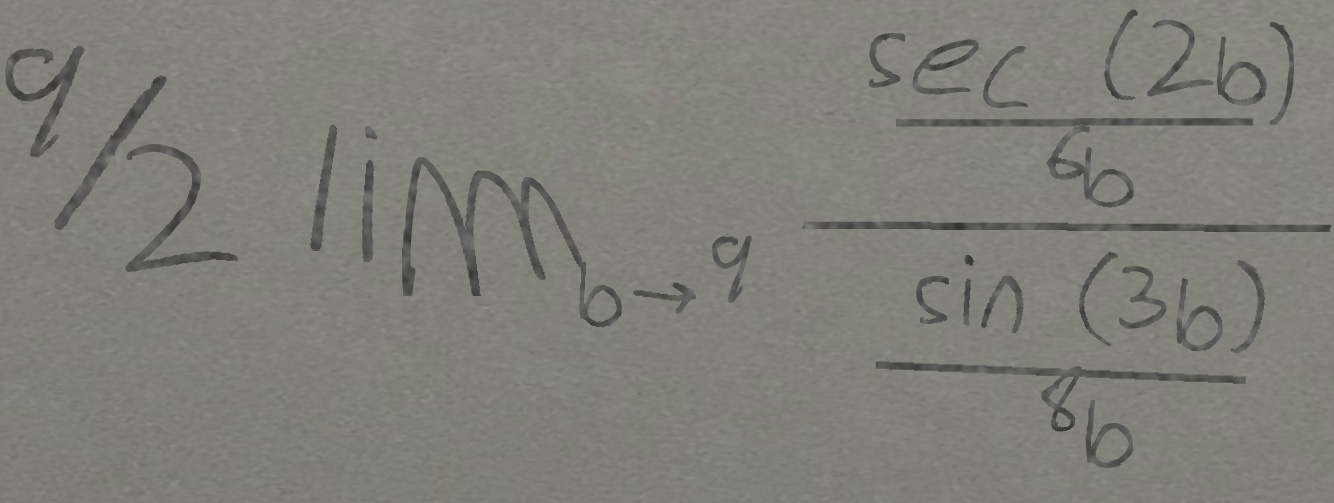 9/2 lim b→9 sec (2b)
6b
sin (3b)
8b